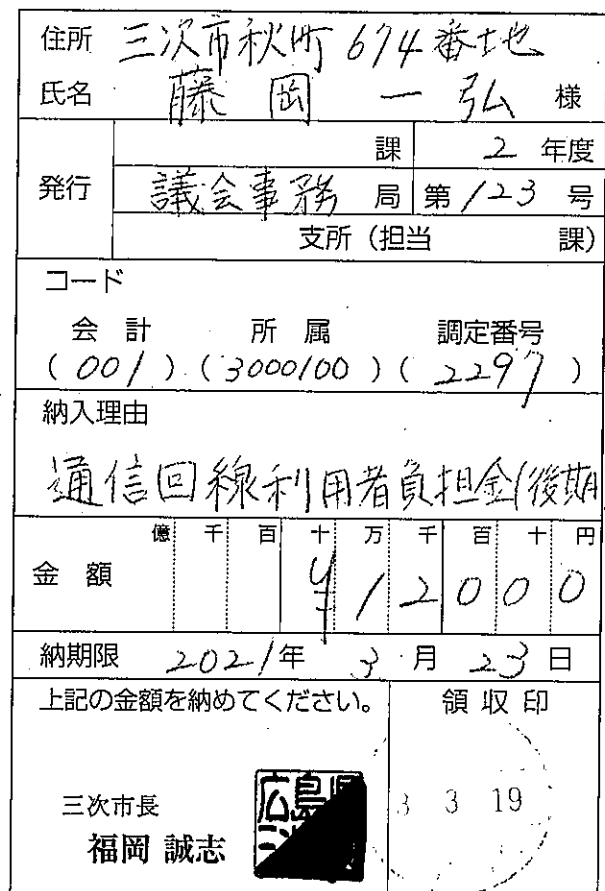 住所 三次市秋町674番地
氏名 藤岡一弘 様
課 2 年度
発行 議会事務 局 第123号
支所(担当 課)
コード
会計 所属 調定番号
(001)(3000100)(2297)
納入理由
通信回線利用者負担金(後期
億 千 百 十 万 千 百 十 円
金額 ¥12000
納期限 2021年 3月 23日
上記の金額を納めてください。 領収印
三次市長
福岡 誠志
広島県
3 3 19